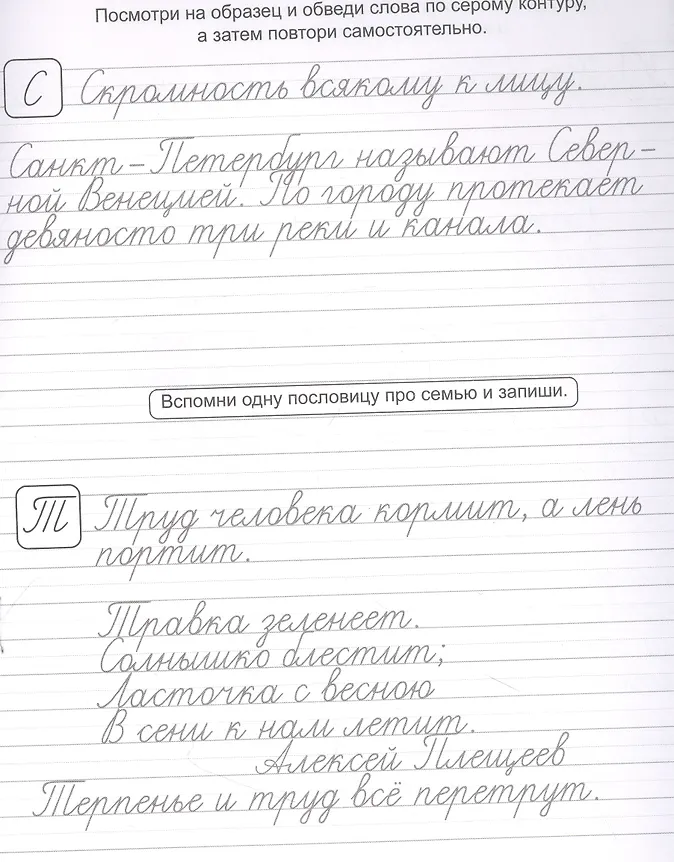 Посмотри на образец и обведи слова по серому контуру,
а затем повтори самостоятельно.
С Скромность всякому к лицу.
Санкт-Петербург называют Север-
ной Венецией. По городу протекает
девяносто три реки и канала.
Вспомни одну пословицу про семью и запиши.
Т Труд человека кормит, а лень
портит.
Травка зеленеет.
Солнышко блестит;
Ласточка с весною
В сени к нам летит.
Алексей Плещеев
Терпенье и труд всё перетрут.